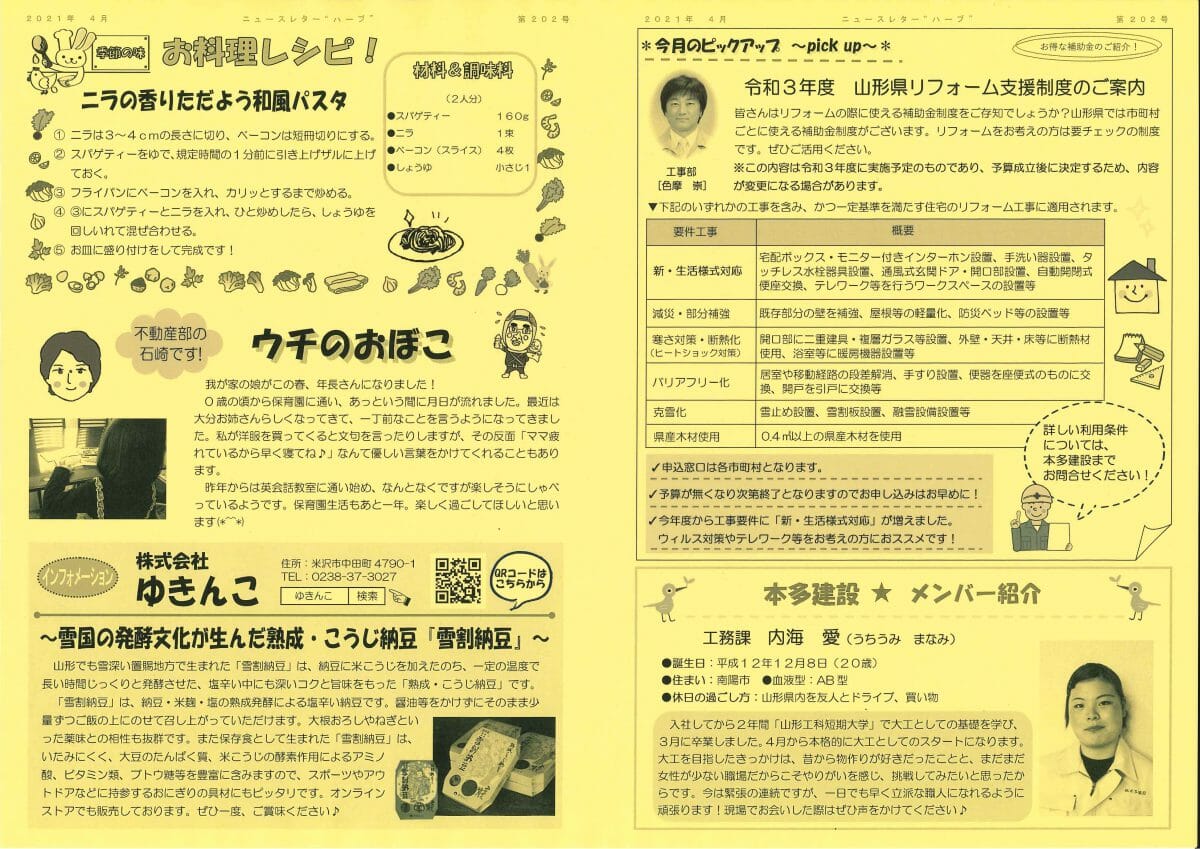 2021年 4月 ニュースレター“ハーブ” 第202号
季節の味 お料理レシピ！
ニラの香りただよう和風パスタ
① ニラは3～4cmの長さに切り、ベーコンは短冊切りにする。
② スパゲティーをゆで、規定時間の1分前に引き上げザルに上げ
ておく。
③ フライパンにベーコンを入れ、カリッとするまで炒める。
④ ③にスパゲティーとニラを入れ、ひと炒めしたら、しょうゆを
回しいれて混ぜ合わせる。
⑤ お皿に盛り付けをして完成です！
材料＆調味料
（2人分）
●スパゲティー 160g
●ニラ 1束
●ベーコン（スライス） 4枚
●しょうゆ 小さじ1
不動産部の
石崎です！
ウチのおぼこ
我が家の娘がこの春、年長さんになりました！
0歳の頃から保育園に通い、あっという間に月日が流れました。最近は
大分お姉さんらしくなってきて、一丁前なことを言うようになってきまし
た。私が洋服を買ってくると文句を言ったりしますが、その反面「ママ疲
れているから早く寝てね♪」なんて優しい言葉をかけてくれることもあり
ます。
昨年からは英会話教室に通い始め、なんとなくですが楽しそうにしゃべ
っているようです。保育園生活もあと一年。楽しく過ごしてほしいと思い
ます(*^^*)
インフォメーション
株式会社
ゆきんこ
住所：米沢市中田町4790-1
TEL：0238-37-3027
ゆきんこ 検索
QRコードは
こちらから
～雪国の発酵文化が生んだ熟成・こうじ納豆『雪割納豆』～
山形でも雪深い置賜地方で生まれた「雪割納豆」は、納豆に米こうじを加えたのち、一定の温度で
長い時間じっくりと発酵させた、塩辛い中にも深いコクと旨味をもった「熟成・こうじ納豆」です。
「雪割納豆」は、納豆・米麹・塩の熟成発酵による塩辛い納豆です。醤油等をかけずにそのまま少
量ずつご飯の上にのせて召し上がっていただけます。大根おろしやねぎとい
った薬味との相性も抜群です。また保存食として生まれた「雪割納豆」は、
いたみにくく、大豆のたんぱく質、米こうじの酵素作用によるアミノ
酸、ビタミン類、ブトウ糖等を豊富に含みますので、スポーツやアウ
トドアなどに持参するおにぎりの具材にもピッタリです。オンライン
ストアでも販売しております。ぜひ一度、ご賞味ください♪
雪割納豆
2021年 4月 ニュースレター“ハーブ” 第202号
＊今月のピックアップ ～pick up～＊
お得な補助金のご紹介！
工事部
[色摩 崇]
令和3年度 山形県リフォーム支援制度のご案内
皆さんはリフォームの際に使える補助金制度をご存知でしょうか？山形県では市町村
ごとに使える補助金制度がございます。リフォームをお考えの方は要チェックの制度
です。ぜひご活用ください。
※この内容は令和3年度に実施予定のものであり、予算成立後に決定するため、内容
が変更になる場合があります。
▼下記のいずれかの工事を含み、かつ一定基準を満たす住宅のリフォーム工事に適用されます。
要件工事 概要
新・生活様式対応 宅配ボックス・モニター付きインターホン設置、手洗い器設置、タ
ッチレス水栓器具設置、通風式玄関ドア・開口部設置、自動開閉式
便座交換、テレワーク等を行うワークスペースの設置等
減災・部分補強 既存部分の壁を補強、屋根等の軽量化、防災ベッド等の設置等
寒さ対策・断熱化 開口部に二重建具・複層ガラス等設置、外壁・天井・床等に断熱材
（ヒートショック対策） 使用、浴室等に暖房機器設置等
バリアフリー化 居室や移動経路の段差解消、手すり設置、便器を座便式のものに交
換、開戸を引戸に交換等
克雪化 雪止め設置、雪割板設置、融雪設備設置等
県産木材使用 0.4㎥以上の県産木材を使用
✓申込窓口は各市町村となります。
✓予算が無くなり次第終了となりますのでお申し込みはお早めに！
✓今年度から工事要件に「新・生活様式対応」が増えました。
ウィルス対策やテレワーク等をお考えの方におススメです！
詳しい利用条件
については、
本多建設まで
お問合せください！
本多建設 ★ メンバー紹介
工務課 内海 愛（うちうみ まなみ）
●誕生日：平成12年12月8日（20歳）
●住まい：南陽市 ●血液型：AB型
●休日の過ごし方：山形県内を友人とドライブ、買い物
入社してから2年間「山形工科短期大学」で大工としての基礎を学び、
3月に卒業しました。4月から本格的に大工としてのスタートになります。
大工を目指したきっかけは、昔から物作りが好きだったことと、まだまだ
女性が少ない職場だからこそやりがいを感じ、挑戦してみたいと思ったか
らです。今は緊張の連続ですが、一日でも早く立派な職人になれるように
頑張ります！現場でお会いした際はぜひ声をかけてください♪